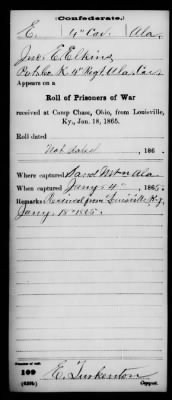 (Confederate.)
E. 4" Cav. Ala.
Jno. E. Elkins
Co. K. 4" Regt Ala Cav.
Appears on a
Roll of Prisoners of War
received at Camp Chase, Ohio, from Louisville,
Ky., Jan. 18, 1865.
Roll dated
Not dated 186 .
Where captured Sand Mtn Ala.
When captured Jany 4", 1865.
Remarks: Received from Louisville Ky.
Jany 18" 1865.
Number of roll:
109
E. Turkenton
(639b) Copyist.